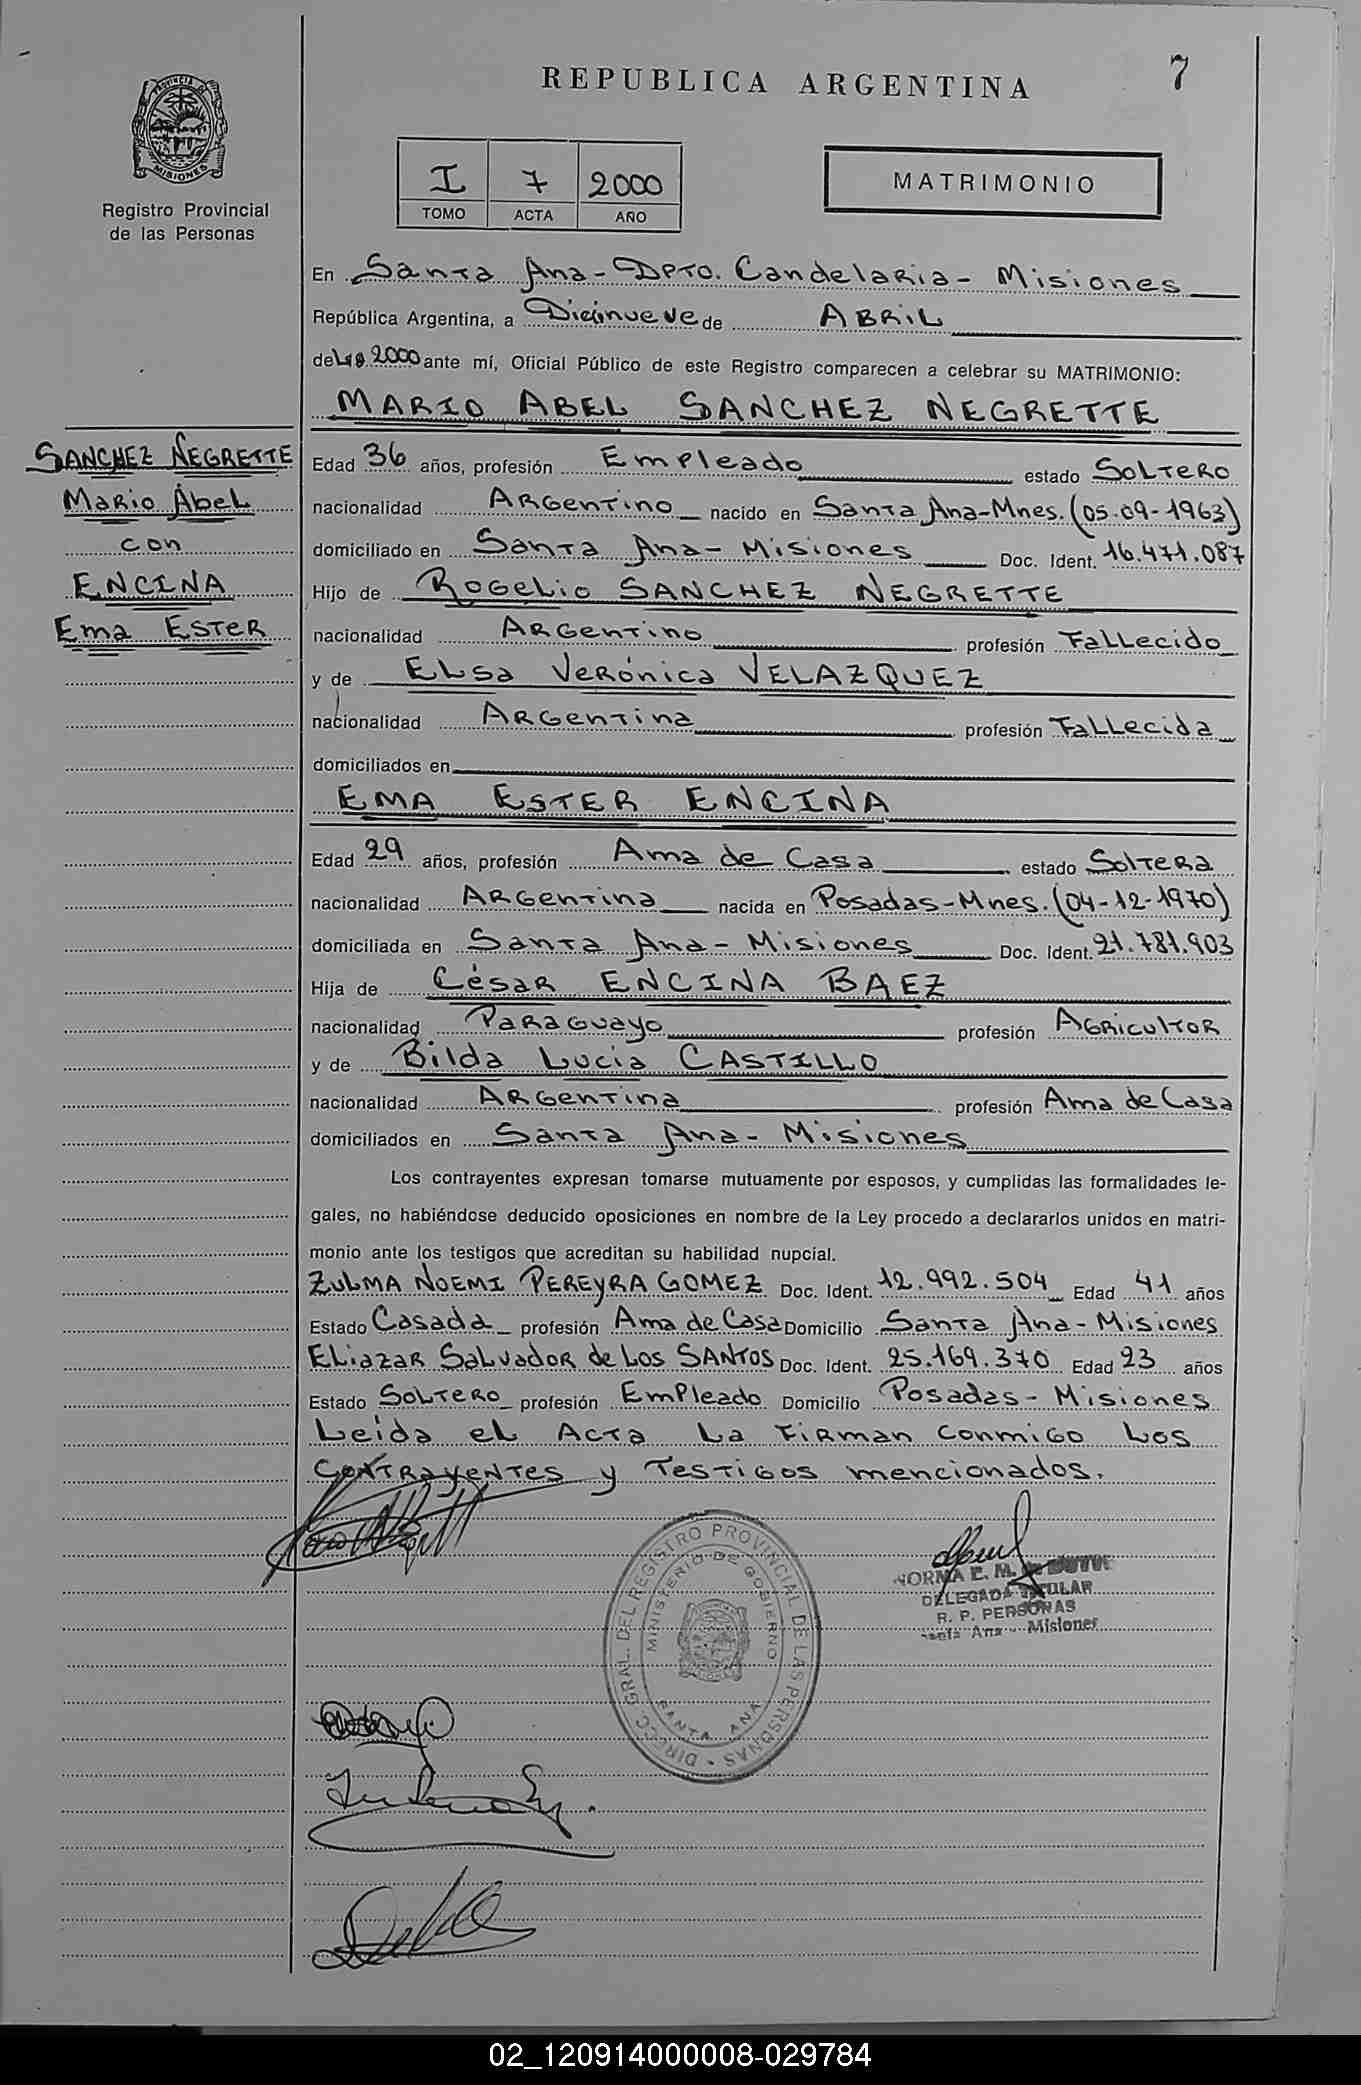 7
REPUBLICA ARGENTINA
PROVINCIA DE
MISIONES
Registro Provincial
de las Personas
I 7 2000
TOMO ACTA AÑO
MATRIMONIO
En Santa Ana - Dpto. Candelaria - Misiones
República Argentina, a Diecinueve de ABRIL
del 2000 ante mí, Oficial Público de este Registro comparecen a celebrar su MATRIMONIO:
MARIO ABEL SANCHEZ NEGRETTE
SANCHEZ NEGRETTE
Mario Abel
con
ENCINA
Ema ESTER
Edad 36 años, profesión Empleado estado SOLTERO
nacionalidad Argentino nacido en Santa Ana-Mnes. (05-09-1963)
domiciliado en Santa Ana - Misiones Doc. Ident. 16.471.087
Hijo de Rogelio SANCHEZ NEGRETTE
nacionalidad Argentino profesión Fallecido
y de Elsa Verónica VELAZQUEZ
nacionalidad Argentina profesión Fallecida
domiciliados en
EMA ESTER ENCINA
Edad 29 años, profesión Ama de Casa estado Soltera
nacionalidad Argentina nacida en Posadas-Mnes. (04-12-1970)
domiciliada en Santa Ana - Misiones Doc. Ident. 21.781.903
Hija de César ENCINA BAEZ
nacionalidad Paraguayo profesión Agricultor
y de Bilda Lucia CASTILLO
nacionalidad Argentina profesión Ama de Casa
domiciliados en Santa Ana - Misiones
Los contrayentes expresan tomarse mutuamente por esposos, y cumplidas las formalidades le-
gales, no habiéndose deducido oposiciones en nombre de la Ley procedo a declararlos unidos en matri-
monio ante los testigos que acreditan su habilidad nupcial.
ZULMA NOEMI PEREYRA GOMEZ Doc. Ident. 12.992.504 Edad 41 años
Estado Casada profesión Ama de Casa Domicilio Santa Ana - Misiones
Eliazar Salvador de Los SANTOS Doc. Ident. 25.169.370 Edad 23 años
Estado Soltero profesión Empleado Domicilio Posadas - Misiones
Leída el Acta la firman conmigo los
contrayentes y testigos mencionados.
DIRECC. GRAL. DEL REGISTRO PROVINCIAL DE LAS PERSONAS -
MINISTERIO DE GOBIERNO
SANTA ANA
NORMA E. M.
DELEGADA TITULAR
R. P. PERSONAS
Santa Ana - Misiones
02_120914000008-029784